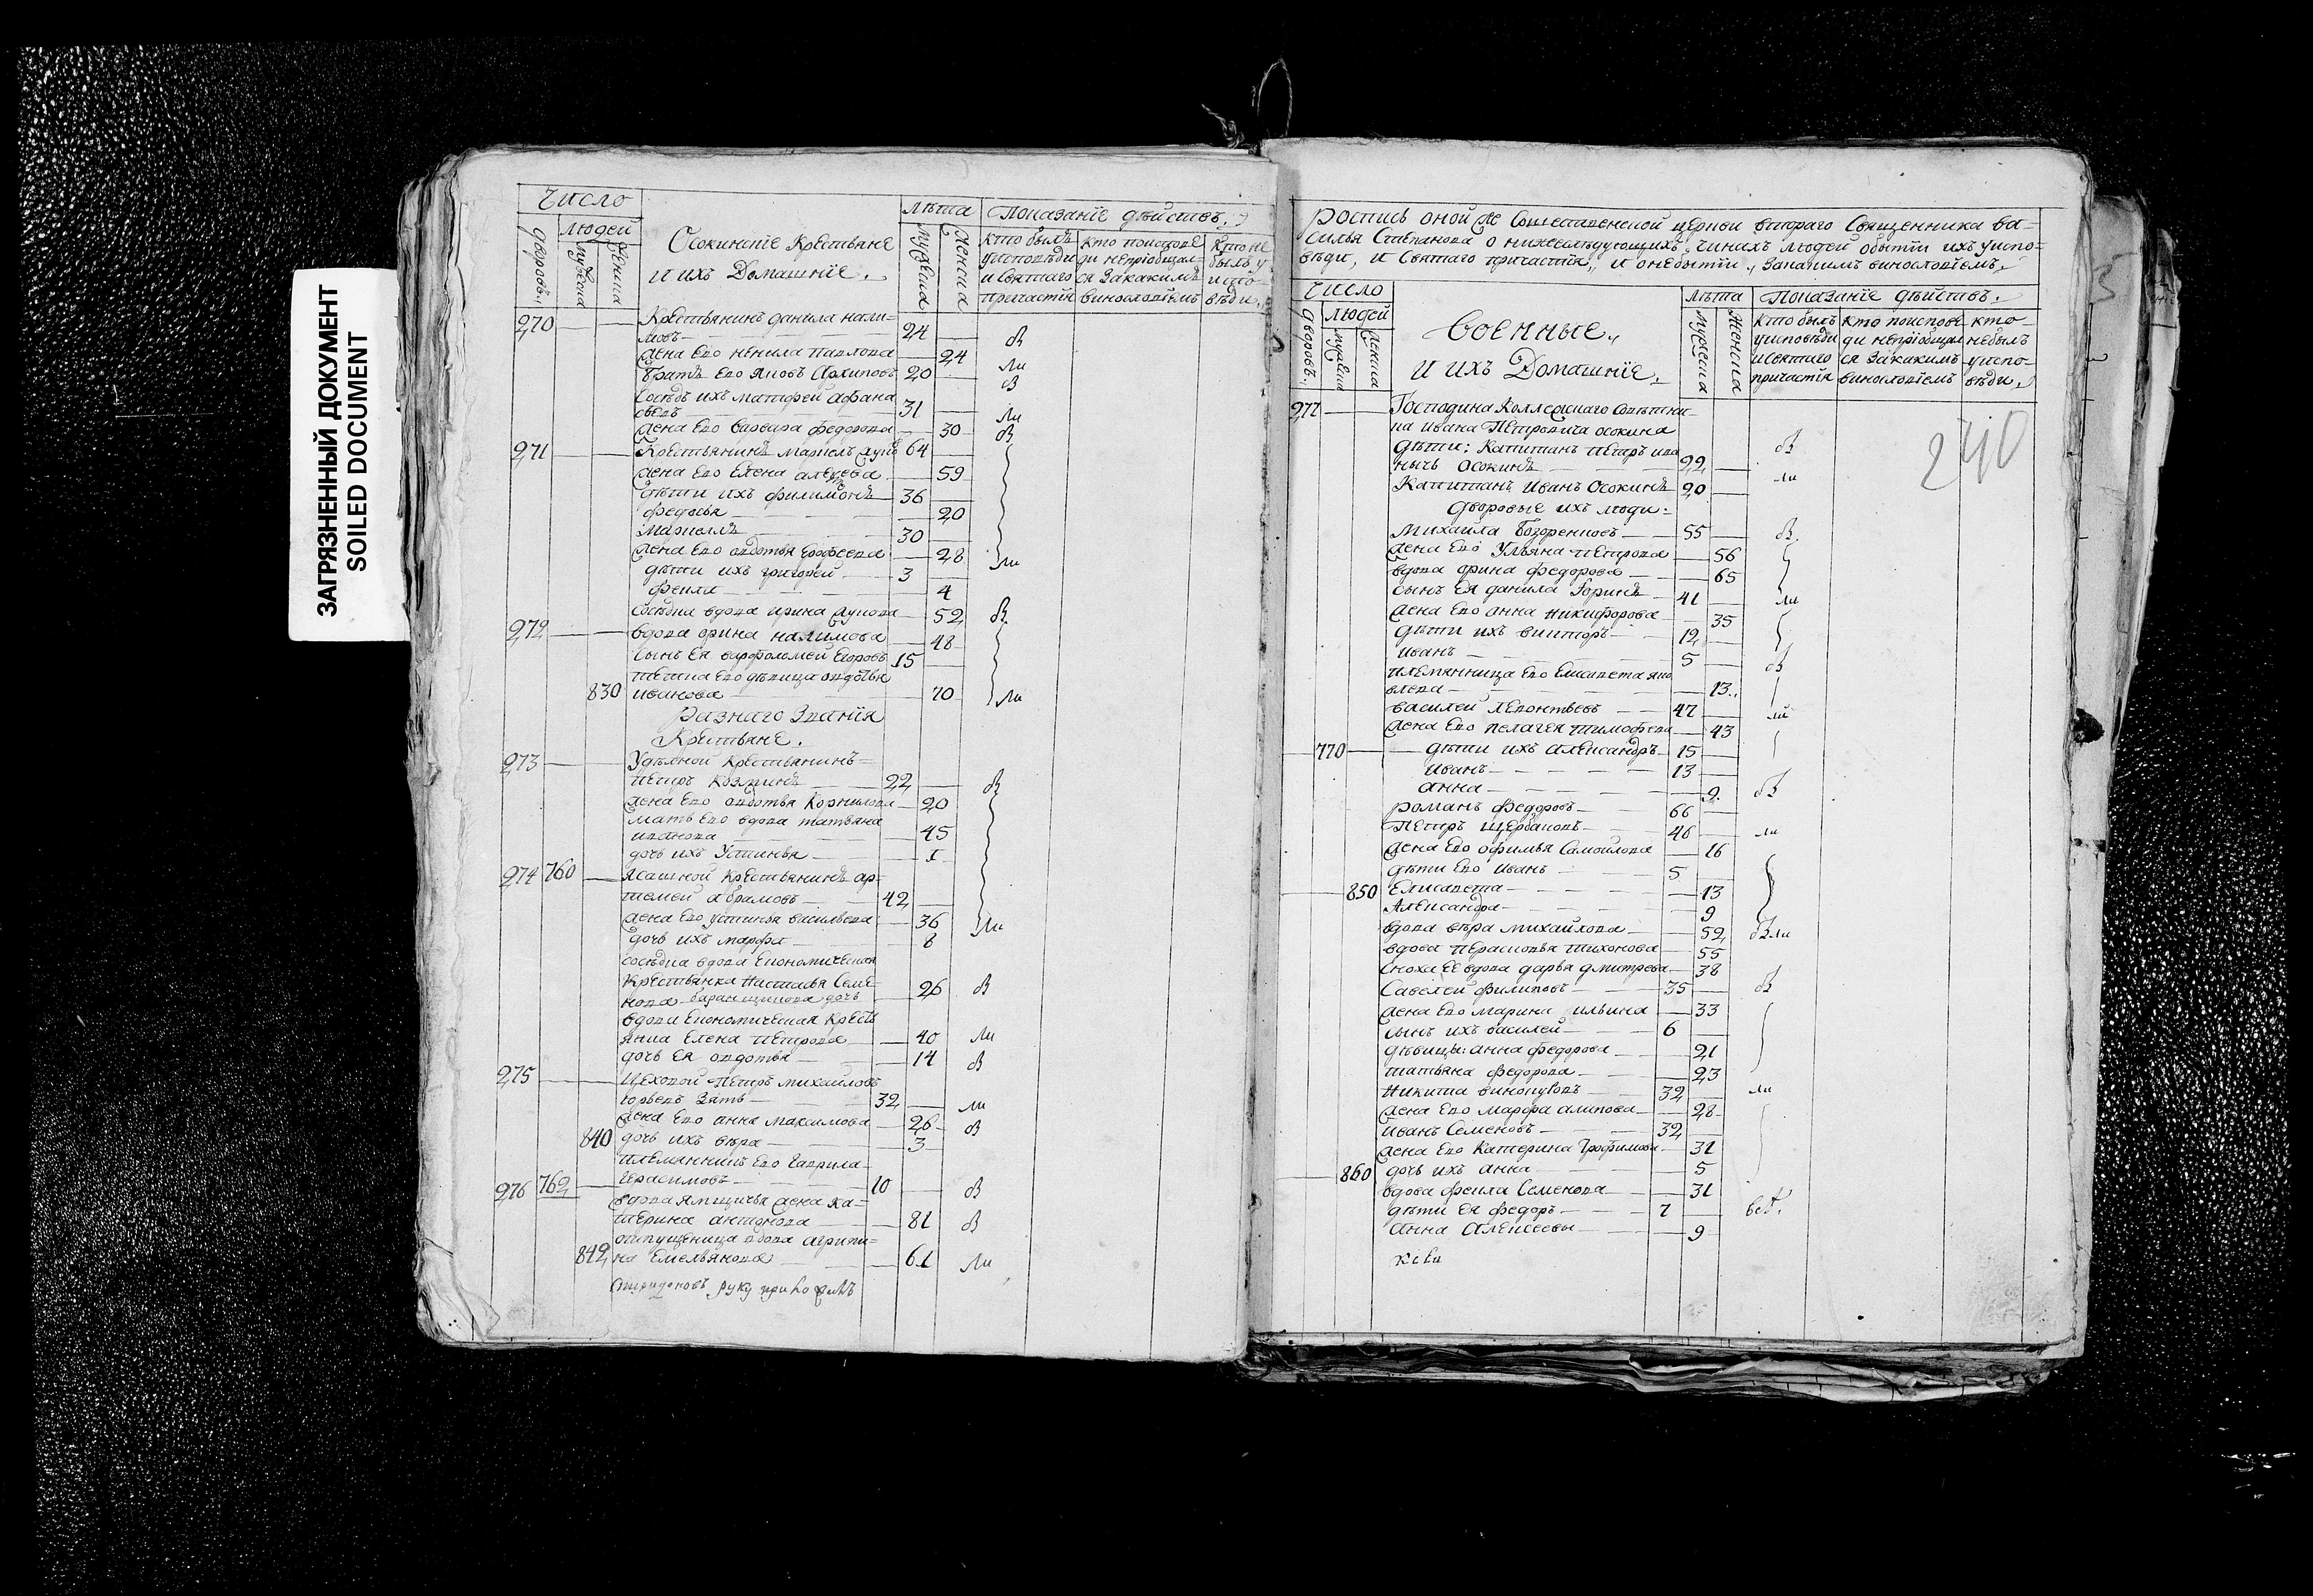 ЗАГРЯЗНЕННЫЙ ДОКУМЕНТ
SOILED DOCUMENT
Число
людей
дворовъ
мужеска
женска
Осокинскіе Крестьяне
и ихъ Домашніе.
лѣта
мужеска
женска
Показаніе дѣйствъ.
кто былъ
у исповѣди
и святаго
причастія
кто исповѣ
ди непріобщал
ся за какимъ
винословіемъ
кто не
былъ у
испо
вѣди.
270 Крестьянинъ данила нали=
мовъ 24
жена Ево ненила павлова 24
братъ Ево яковъ Архиповъ 20
Сосѣдъ ихъ матфей афана
сьевъ 31
жена Ево варвара федорова 30
271 Крестьянинъ маркелъ 64
жена Ево Елена 59
дѣти ихъ филимонъ 36
федосья 20
маркеллъ 30
жена Ево овдотья Ерофеева 28
дѣти ихъ григорей 3
фекла 4
сосѣдка вдова ирина 52
272 вдова орина налимова 48
сынъ Ея варфоломей Егоровъ 15
тетка Ево дѣвица овдотья
830 иванова 70
Разнаго Званія
Крестьяне.
273 Удѣлной крестьянинъ
Петръ Козминъ 22
жена Ево овдотья Корнилова 20
мать Ево вдова татьяна
иванова 45
дочь ихъ Устинья 1
274 760 Ясашной крестьянинъ ар=
темей абрамовъ 42
жена Ево устинья васильева 36
дочь ихъ марфа 8
сосѣдка вдова Економическая
крестьянка настасья Семе
нова баранщикова дочь 26
вдова Економическая кресть
янка Елена петрова 40
дочь Ея овдотья 14
275 Цеховой Петръ михайловъ
зять 32
жена Ево анна максимова 26
840 дочь ихъ вѣра 3
племянникъ Ево гаврила
герасимовъ 10
276 762 вдова ямщичья жена ка=
терина антонова 81
отпущеница вдова агрипи=
842 на Емельянова 61
Спиридоновъ руку приложилъ
Роспись оной же Сошественской церкви втораго Священника ва=
силья Степанова о нижеслѣдующихъ чинахъ людей обытіи ихъ уиспо=
вѣди, и Святаго причастія, и онебытіи, закакимъ винословіемъ,
240
Число
людей
дворовъ
мужеска
женска
Военные,
и ихъ Домашніе.
лѣта
мужеска
женска
Показаніе дѣйствъ.
кто былъ
уисповѣди
исвятаго
причастія
кто поиспове
ди непріобщил
ся закакимъ
винословіемъ
кто
небылъ
уиспо=
вѣди.
277 Господина Коллежскаго Совѣтни
ка ивана Петровича осокина
дѣти: Капитанъ петръ ива
нычь осокинъ 22
Капитанъ Иванъ Осокинъ 20
дворовые ихъ люди:
михайла 55
жена Ево Ульяна петрова 56
вдова орина федорова 65
сынъ Ея данила 41
жена Ево анна никифорова 35
дѣти ихъ викторъ 12
иванъ 5
племянница Ево Елисавета яко
влева 13
василей леонтьевъ 47
жена Ево пелагея тимофеева 43
770 дѣти ихъ александръ 15
иванъ 13
анна 9
романъ федоровъ 66
Петръ щербаковъ 46
жена Ево офимья Самойлова 16
дѣти Ево иванъ 5
850 Елисавета 13
Александра 9
вдова вѣра михайлова 52
вдова парасковья тихонова 55
сноха Ее вдова дарья дмитрева 38
Савелей филиповъ 35
жена Ево марина ильина 33
сынъ ихъ василей 6
дѣвицы: анна федорова 21
татьяна федорова 23
никита винокуровъ 32
жена Ево марфа 28
иванъ Семеновъ 32
жена Ево катерина трофимова 31
860 дочь ихъ анна 5
вдова фекла Семенова 31
дѣти Ея федоръ 7
анна Алексеевы 9